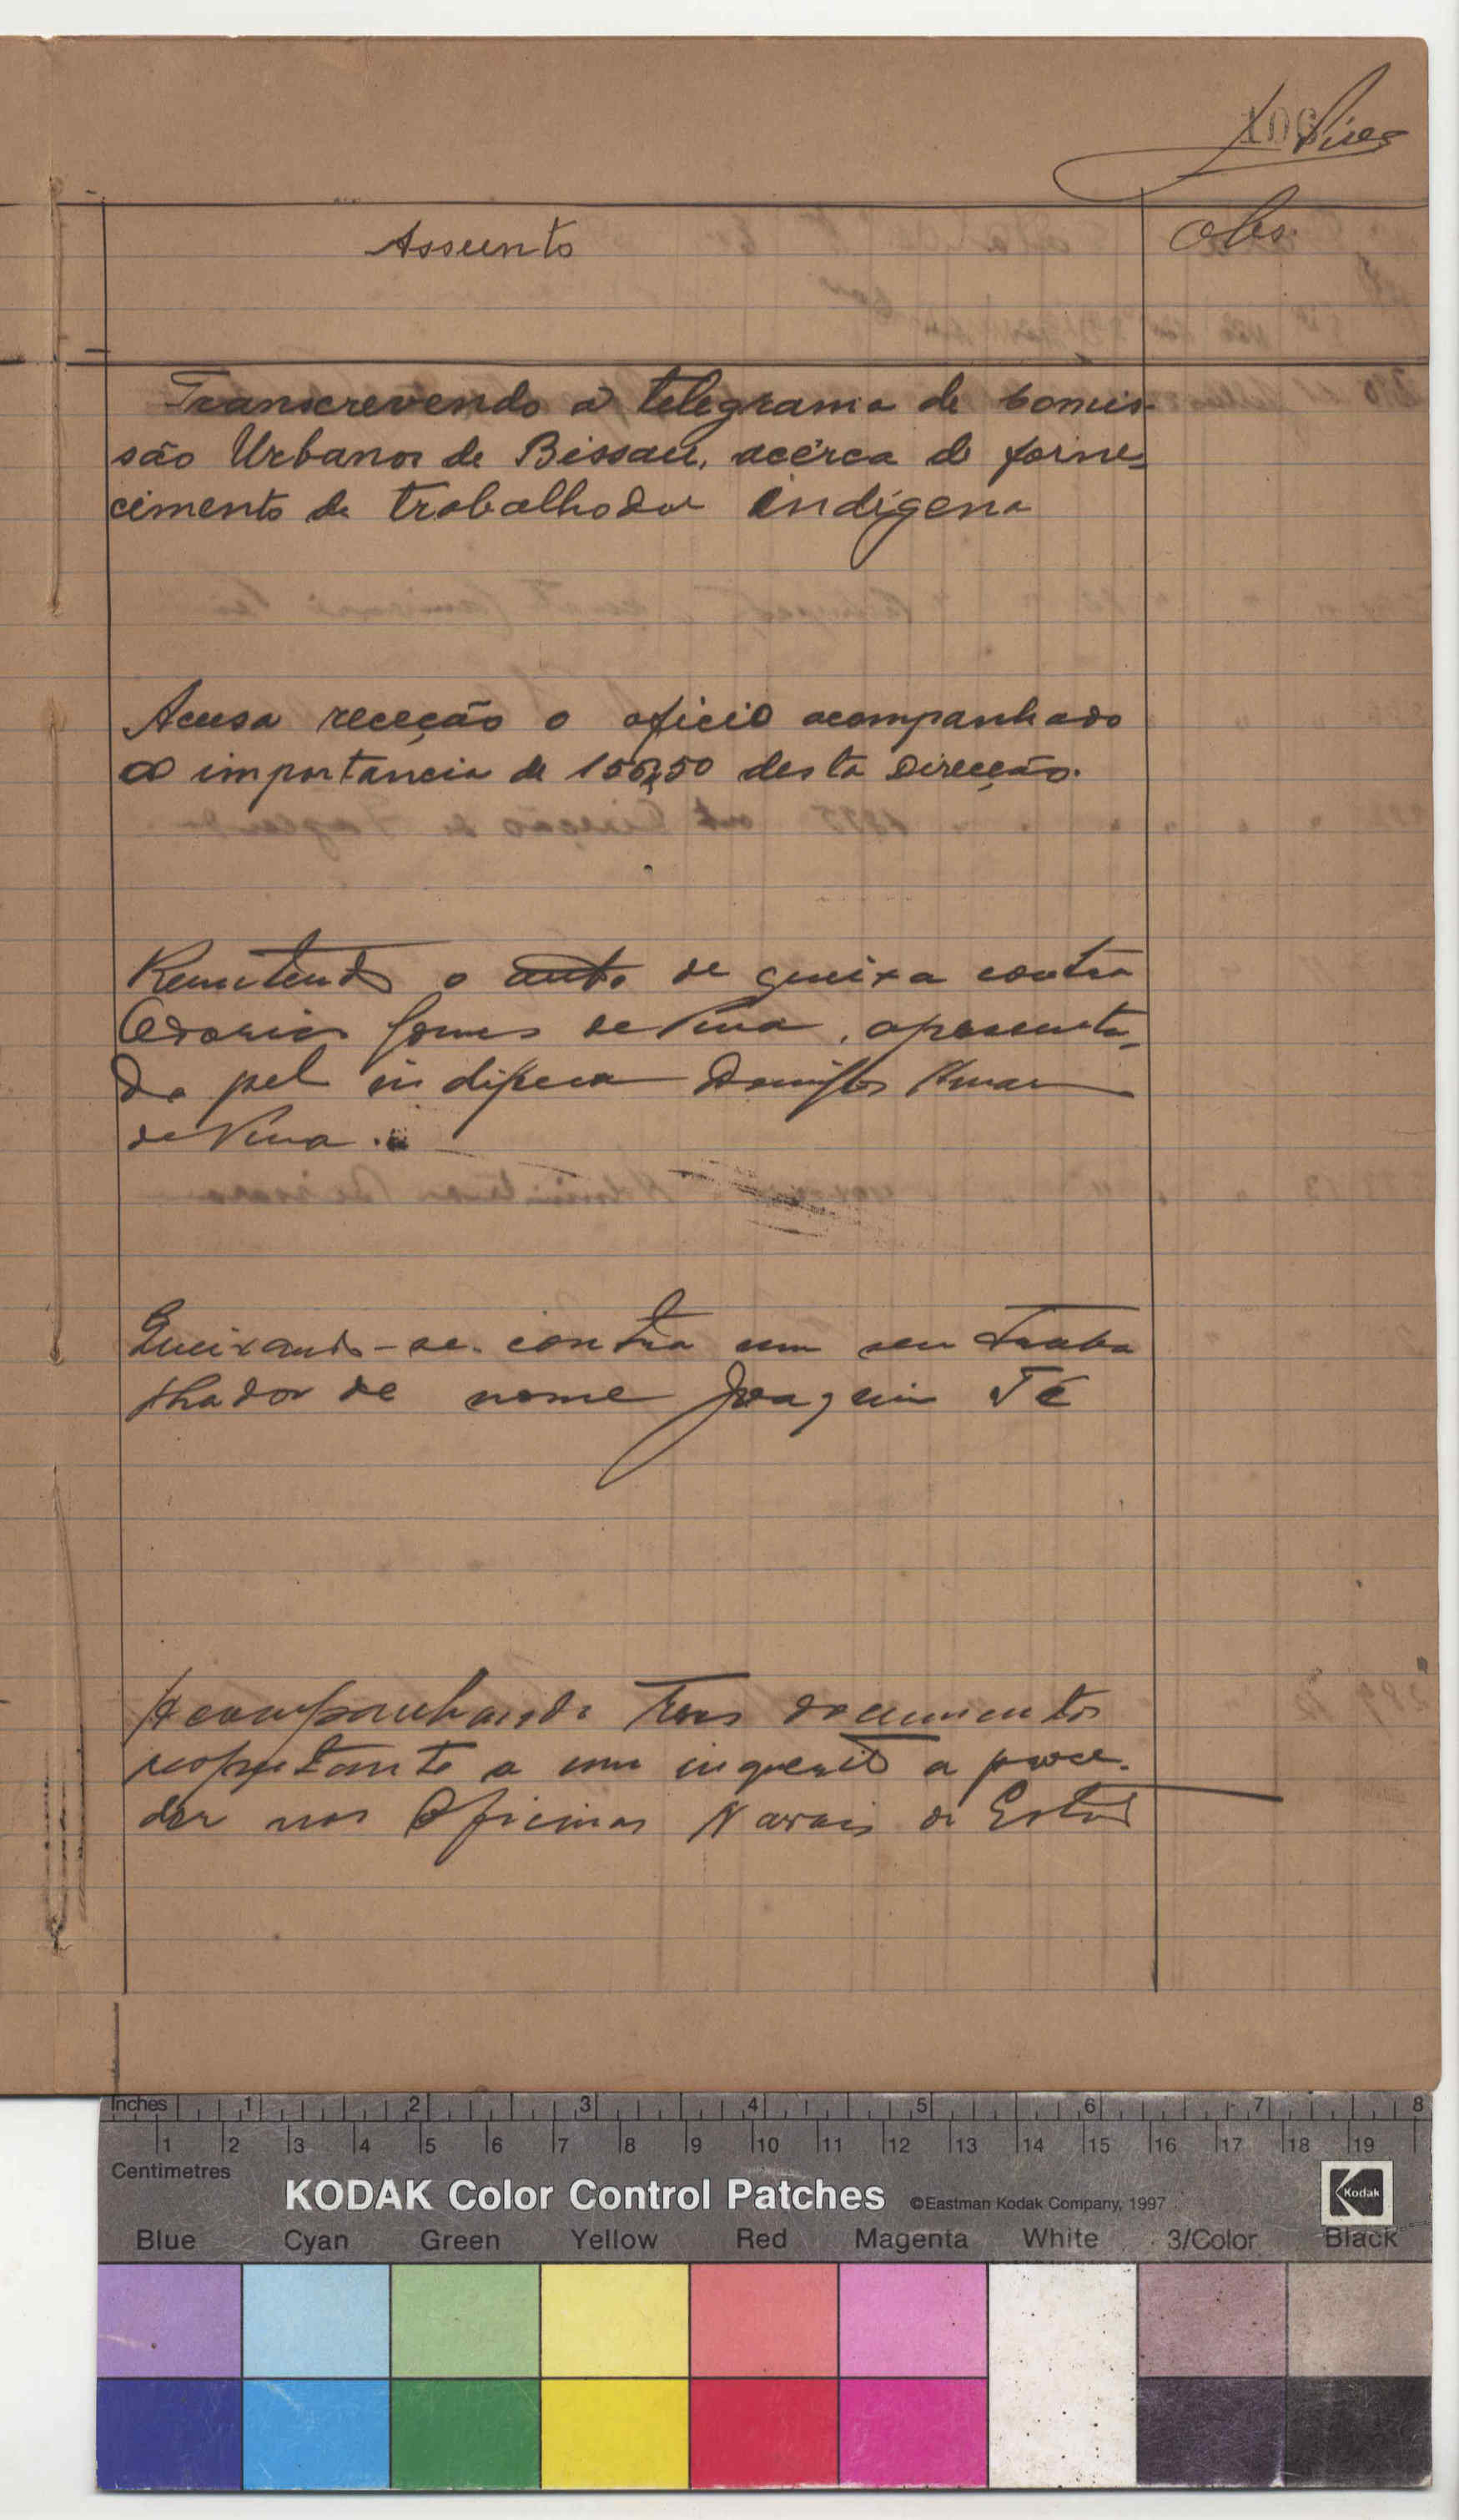 106 Pires
Assunto
Obs.
Transcrevendo o telegrama de Comis-
são Urbanos de Bissau, acêrca de forne-
cimento de trabalhador indígena
Acusa receção o oficio acompanhado
a importancia de 156,50 desta Direcção.
Remetendo o auto de queixa contra
Gomes de Pina, apresenta-
do pel indigena Domingos
de Pina.
Queixando-se contra um seu traba
lhador de nome Joaquim Té
Acompanhando tres documentos
respeitante a um inquerito a proce-
der nas Oficinas Navais do Estado
Inches 1 2 3 4 5 6 7 8
1 2 3 4 5 6 7 8 9 10 11 12 13 14 15 16 17 18 19
Centimetres
KODAK Color Control Patches ©Eastman Kodak Company, 1997 Kodak
Blue Cyan Green Yellow Red Magenta White 3/Color Black